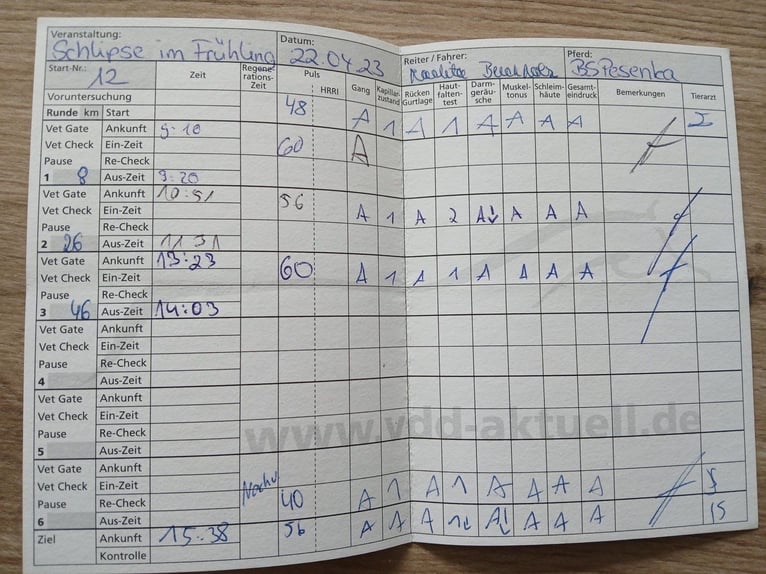 Veranstaltung: Datum: Reiter / Fahrer: Pferd:
Schlipse im Frühling 22.04.23 BS Pesenka
Start-Nr.: 12 Zeit Regene-rations-Zeit Puls HRRI Gang Kapillar-zustand Rücken Gurtlage Haut-falten-test Darm-geräu-sche Muskel-tonus Schleim-häute Gesamt-eindruck Bemerkungen Tierarzt
Voruntersuchung 48
Runde km Start A 1 A 1 A A A A
Vet Gate Ankunft 9:10
Vet Check Ein-Zeit 60 A
Pause Re-Check
1 8 Aus-Zeit 9:20
Vet Gate Ankunft 10:51 56
Vet Check Ein-Zeit A 1 A 2 A↓ A A A
Pause Re-Check
2 26 Aus-Zeit 11 31
Vet Gate Ankunft 13:23 60
Vet Check Ein-Zeit A 1 A 1 A A A A
Pause Re-Check
3 46 Aus-Zeit 14:03
Vet Gate Ankunft
Vet Check Ein-Zeit
Pause Re-Check
4 Aus-Zeit
Vet Gate Ankunft
Vet Check Ein-Zeit
www.vdd-aktuell.de
Pause Re-Check
5 Aus-Zeit
Vet Gate Ankunft
Vet Check Ein-Zeit
Pause Re-Check Nachu 40 A 1 A 1 A A A A
6 Aus-Zeit
Ziel Ankunft 15:38 56 A A A 1↓ A↓ A A A 15
Kontrolle